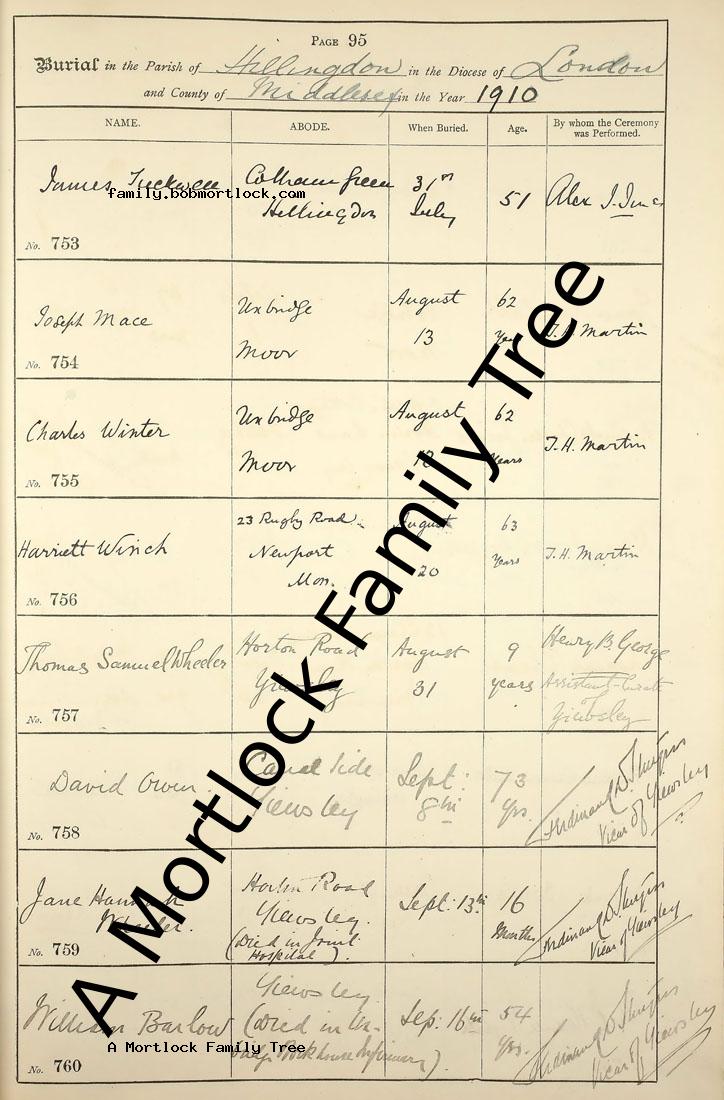 PAGE 95
Burial in the Parish of Hillingdon in the Diocese of London
and County of Middlesex in the Year 1910
NAME. ABODE. When Buried. Age. By whom the Ceremony was Performed.
James Tuckwell Colham Green 31st
family.bobmortlock.com
Hillingdon July 51 Alex J.
No. 753
Joseph Mace Uxbridge August 62
Moor 13 J.H. Martin
No. 754
Charles Winter Uxbridge August 62
Moor Years J.H. Martin
No. 755
Harriett Winch 23 Rugby Road August 63
Newport Years J.H. Martin
Mon. 20
No. 756
Thomas Samuel Wheeler Horton Road August 9 Henry B. George
Yiewsley 31 years Assistant-Curate
Yiewsley
No. 757
David Owen Canal Side Sept: 73
Yiewsley 8th yrs. Vicar of Yiewsley
No. 758
Jane Hannah Horton Road Sept: 13th 16
Wheeler. Yiewsley. Months
(Died in Joint Vicar of Yiewsley
Hospital).
No. 759
Yiewsley
William Barlow (Died in Sep: 16th 54
yrs. Vicar of Yiewsley
A Mortlock Family Tree
No. 760
A Mortlock Family Tree